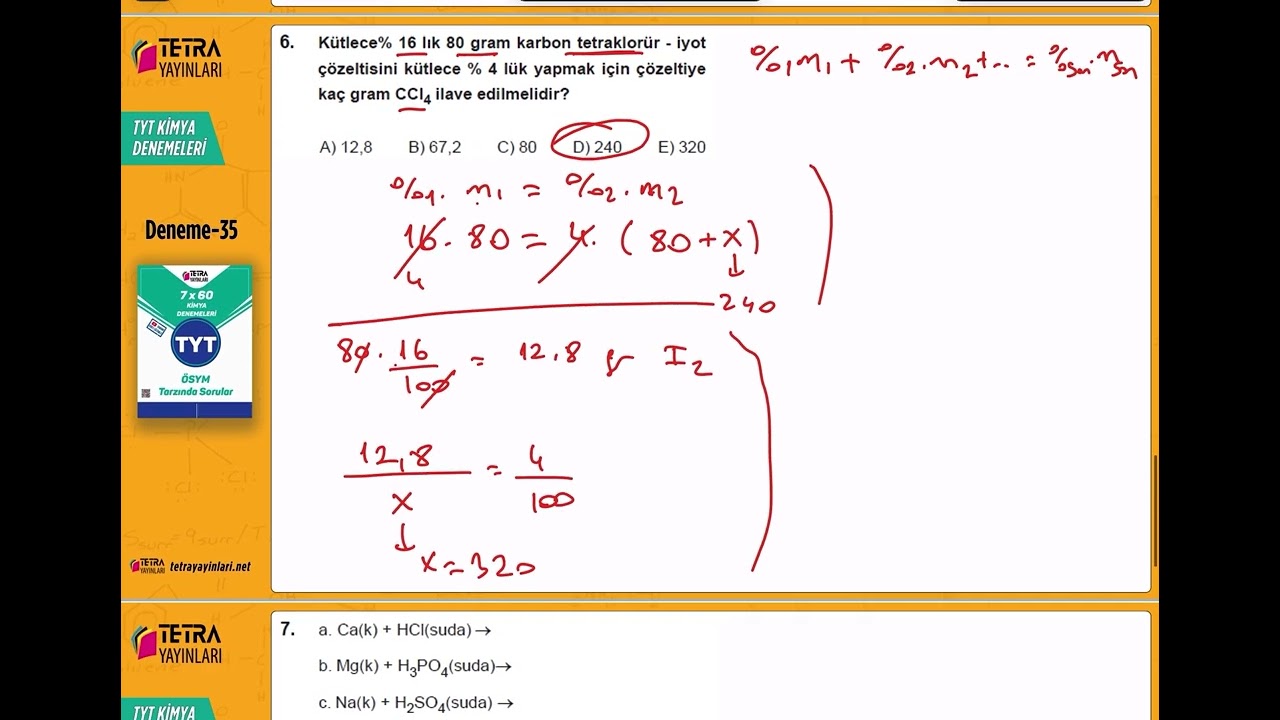 TETRA
YAYINLARI
TYT KİMYA
DENEMELERİ
Deneme-35
TETRA
YAYINLARI
7 x 60
KİMYA
DENEMELERİ
TYT
ÖSYM
Tarzında Sorular
TETRA
YAYINLARI
tetrayayinlari.net
6. Kütlece% 16 lık 80 gram karbon tetraklorür - iyot
çözeltisini kütlece % 4 lük yapmak için çözeltiye
kaç gram CCl₄ ilave edilmelidir?
A) 12,8 B) 67,2 C) 80 D) 240 E) 320
%₁m₁ + %₂.m₂+... = %son.mson
%₁. m₁ = %₂. m₂
16.80 = 4. (80+x)
4
240
80.16/100 = 12,8 gr I₂
12,8/x = 4/100
x=320
TETRA
YAYINLARI
TYT KİMYA
7. a. Ca(k) + HCl(suda) →
b. Mg(k) + H₃PO₄(suda)→
c. Na(k) + H₂SO₄(suda) →